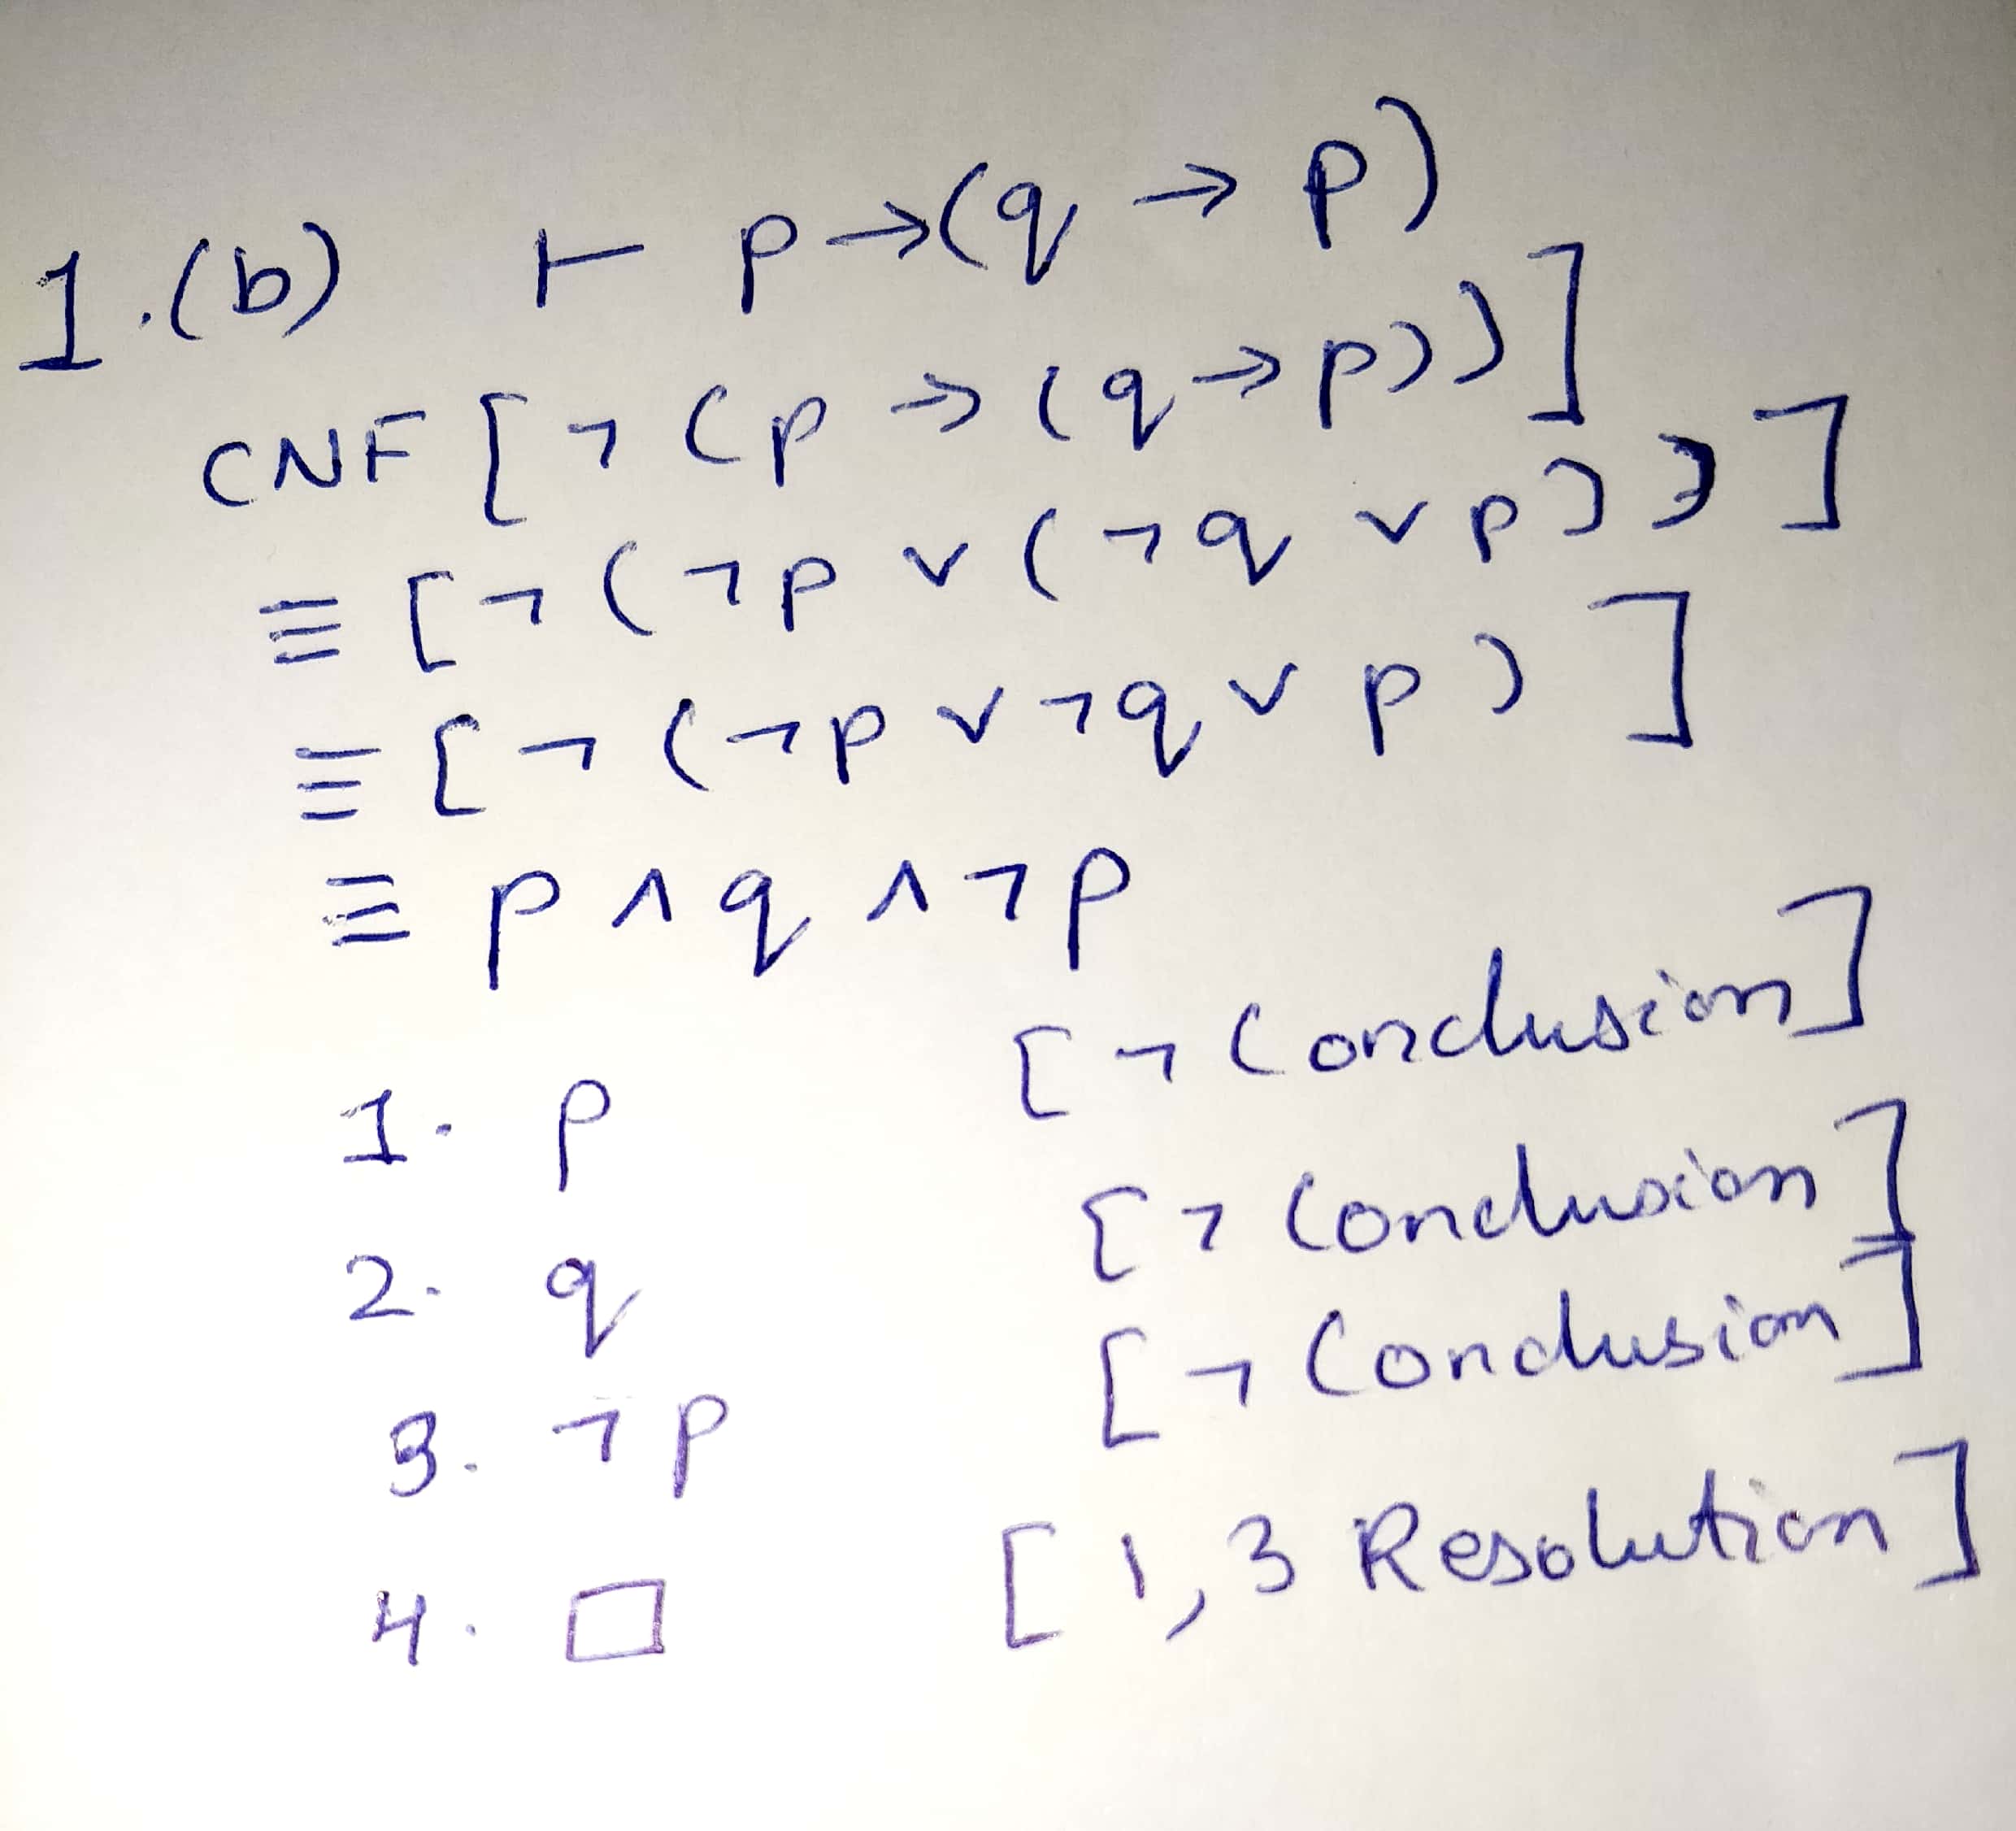 1.(b) ⊢ p→(q → p)
CNF [¬ (p → (q → p))]
≡ [¬ (¬p ∨ (¬q ∨ p))]
≡ [¬ (¬p ∨ ¬q ∨ p)]
≡ p ∧ q ∧ ¬p
1. p [¬ Conclusion]
2. q [¬ Conclusion]
3. ¬p [¬ Conclusion]
4. □ [1,3 Resolution]